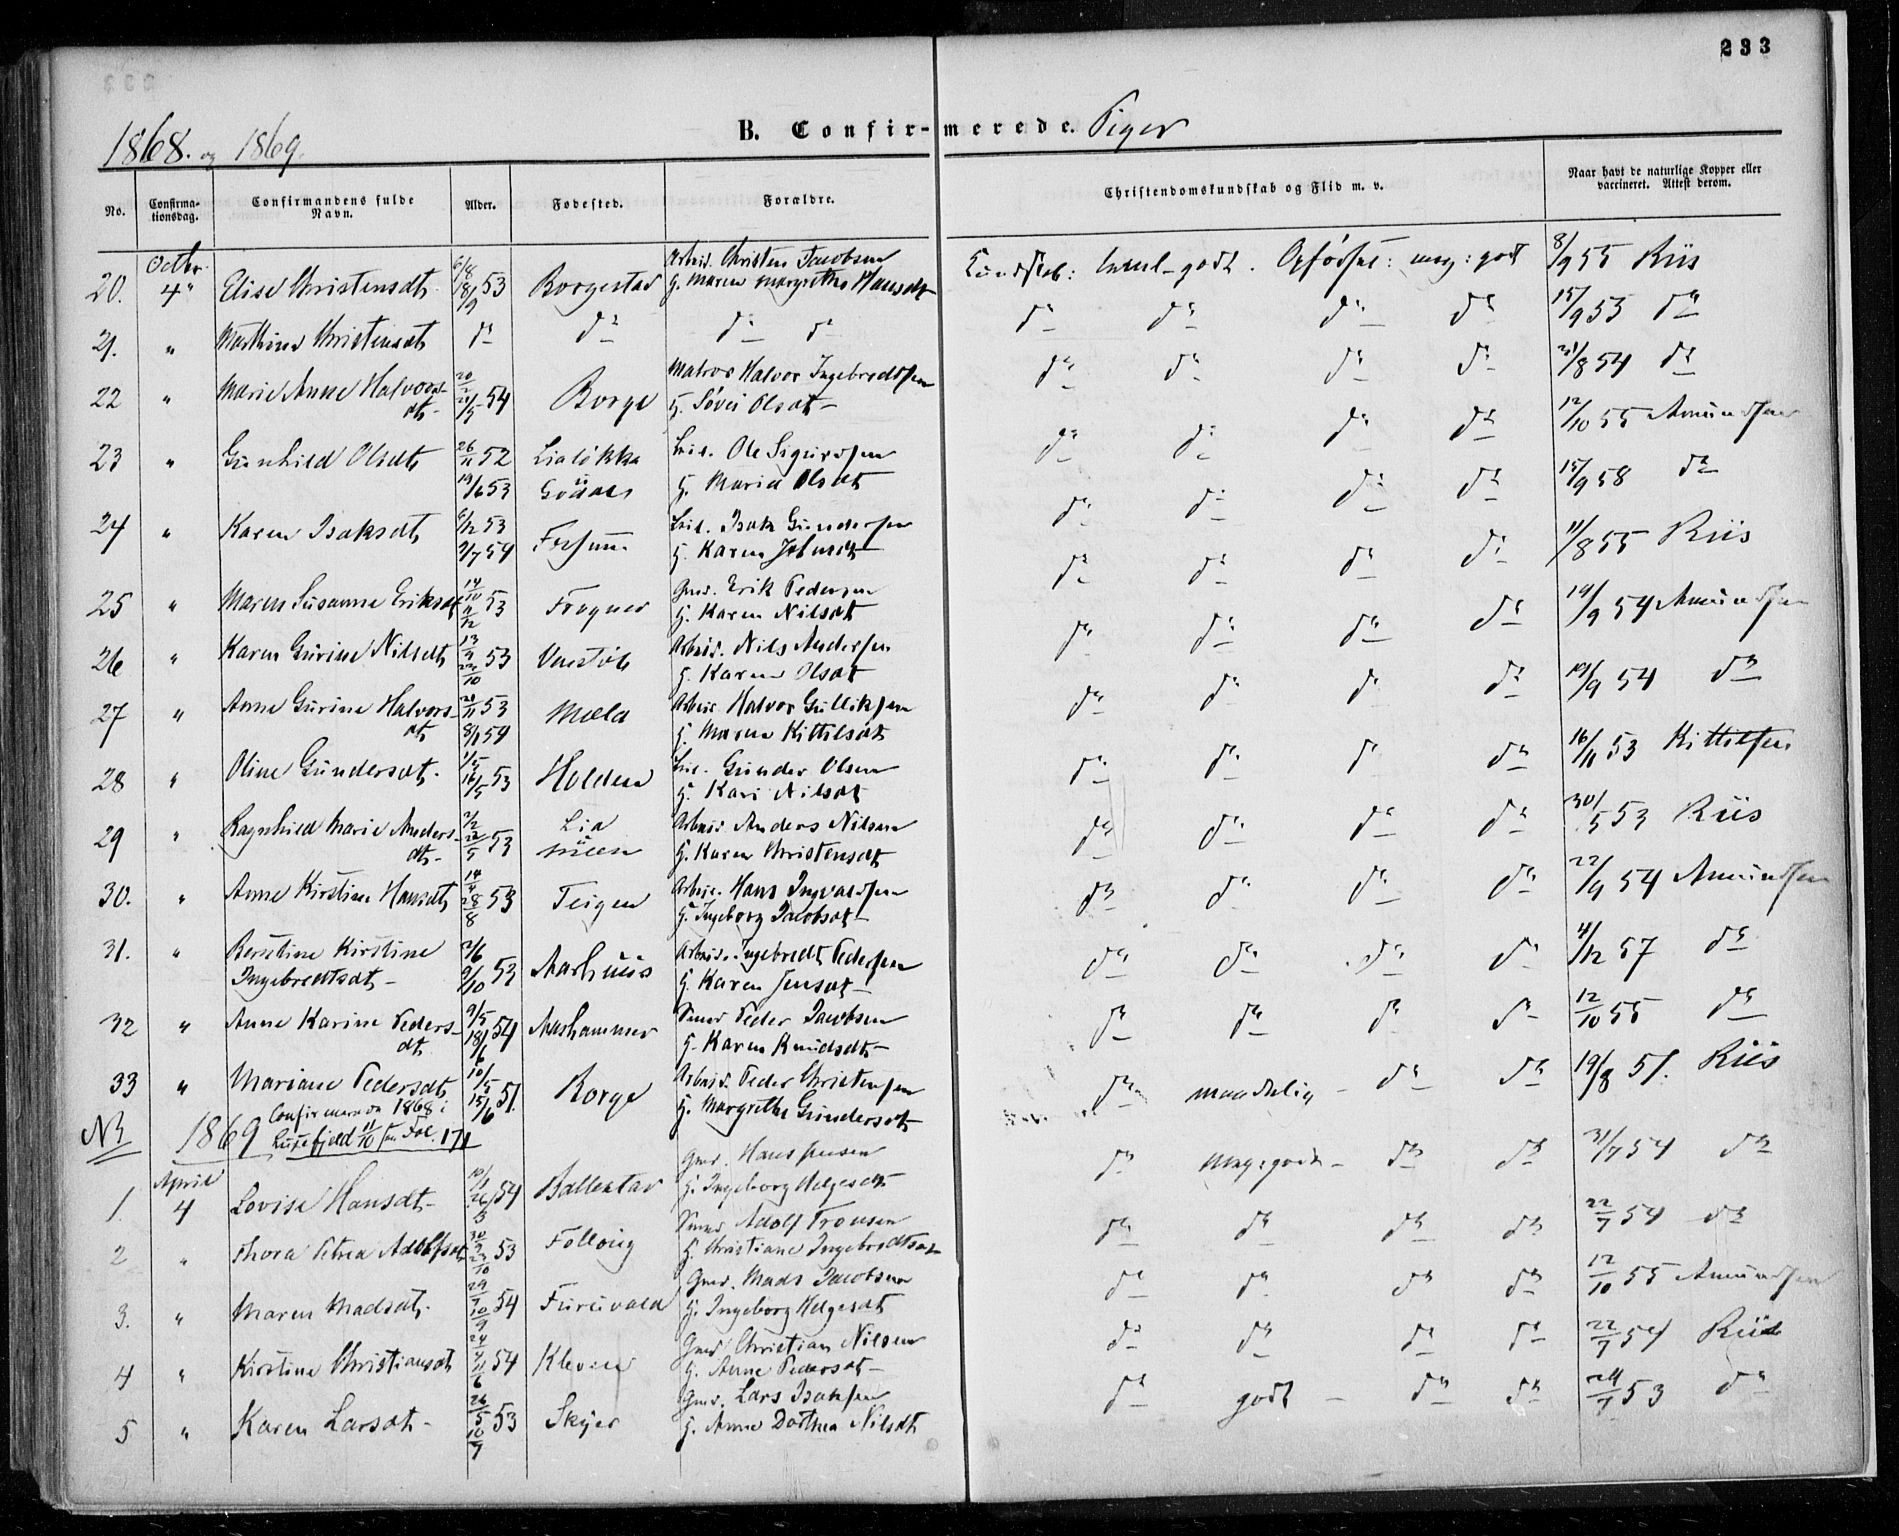 233
1868. og 1869.
B. Confir-merede. Piger
No.
Confirma-tionsdag.
Confirmandens fulde Navn.
Alder.
Fødested.
Forældre.
Christendomskundskab og Flid m. v.
Naar havt de naturlige Kopper eller vaccineret. Attest derom.
Octbr.
20. 4" Elise Christensdt. 6/8 18/9 53 Borgestad Arbeid. Christen Jacobsen
H. Maren Margrethe Hansdt
Kundskab: godt. Opførsel: meg: godt 8/9 55 Riis
21. " Mathine Christensdt do do do do do do do do 15/9 53 do
22 " Marie Anne Halvorsdt. 54 Borge Matros Halvor Ingebredtsen
H. Olsdt do do do do 21/8 54 do
23 " Gunhild Olsdt 26/11 52 19/6 53 Lialøkka Leil. Ole Sigurdsen
H. Maria Olsdt do do do do 12/10 55 Amundsen
24 " Karen Isaksdt 6/12 53 9/7 54 Fossum Leil. Isak Gundersen
H. Karen do do do do 15/9 58 do
25 " Maren Susanne Eriksdt 14/10 4/12 53 Frogner Gmd. Erik Pedersen
H. Karen Nilsdt do do do do 11/8 55 Riis
26 " Karen Gurine Nilsdt 13/9 53 Venstøb Arbeid. Nils Andersen
H. Karen Olsdt do do do do 19/9 54 Amundsen
27 " Anne Gurine Halvorsdt 20/11 53 8/1 54 Mæla Arbeid. Halvor Gulliksen
H. Maren Kittilsdt do do do do 19/9 54 do
28 " Oline Gundersdt. 1/5 16/5 53 Holden Leil. Gunder Olsen
H. Kari Nilsdt do do do do 16/11 53 Kittilsen
29 " Ragnhild Marie Andersdt. 2/2 53 Lia Arbeid. Anders Nilsen
H. Karen Christensdt do do do do 30/5 53 Riis
30. " Anne Kirstine Hansdt 28/8 53 Teigen Arbeid. Hans Ingvaldsen
H. Ingeborg Jacobsdt do do do do 22/9 54 Amundsen
31. " Berstine Kirstine Ingebredtsdt 2/6 9/10 53 Aarhuus Arbeid. Ingebredt Pedersen
H. Karen Jensdt do do do do 4/12 57 do
32 " Anne Karine Pedersdt 9/5 18/6 54 Aashammer Peder Jacobsen
H. Karen Knudsdt do do do do 12/10 55 do
33 " Mariane Pedersdt 10/5 15/6 51. Borge Arbeid. Peder Christensen
H. Margrethe Gundersdt do maadelig do do 19/8 51. Riis
No 1869 Confirmerede 1868 i Luxefjeld 11/10 Fol. 171
April
1. 4 Lovise Hansdt 54 Ballestad Gmd. Hans Jensen
H. Ingeborg Helgesdt do Meg: godt do do 31/7 54 do
2 " Thora Petrea Adolfsdt 53 Follaug Adolf Tronsen
H. Christiane Ingebredtsdt do do do do 22/7 54 do
3. " Maren Madsdt. 29/7 10/9 54 Furuvald Gmd. Mads Jacobsen
H. Ingeborg Helgesdt do do do do 12/10 55 Amundsen
4 " Kirstine Christiansdt 24/4 11/6 54 Kleven Gmd Christian Nilsen
H. Anne Pedersdt do do do do 22/7 54 Riis
5 " Karen Larsdt 26/5 10/7 53 Gmd. Lars Isaksen
H. Anne Dorthea Nilsdt do godt do do 24/7 53 do